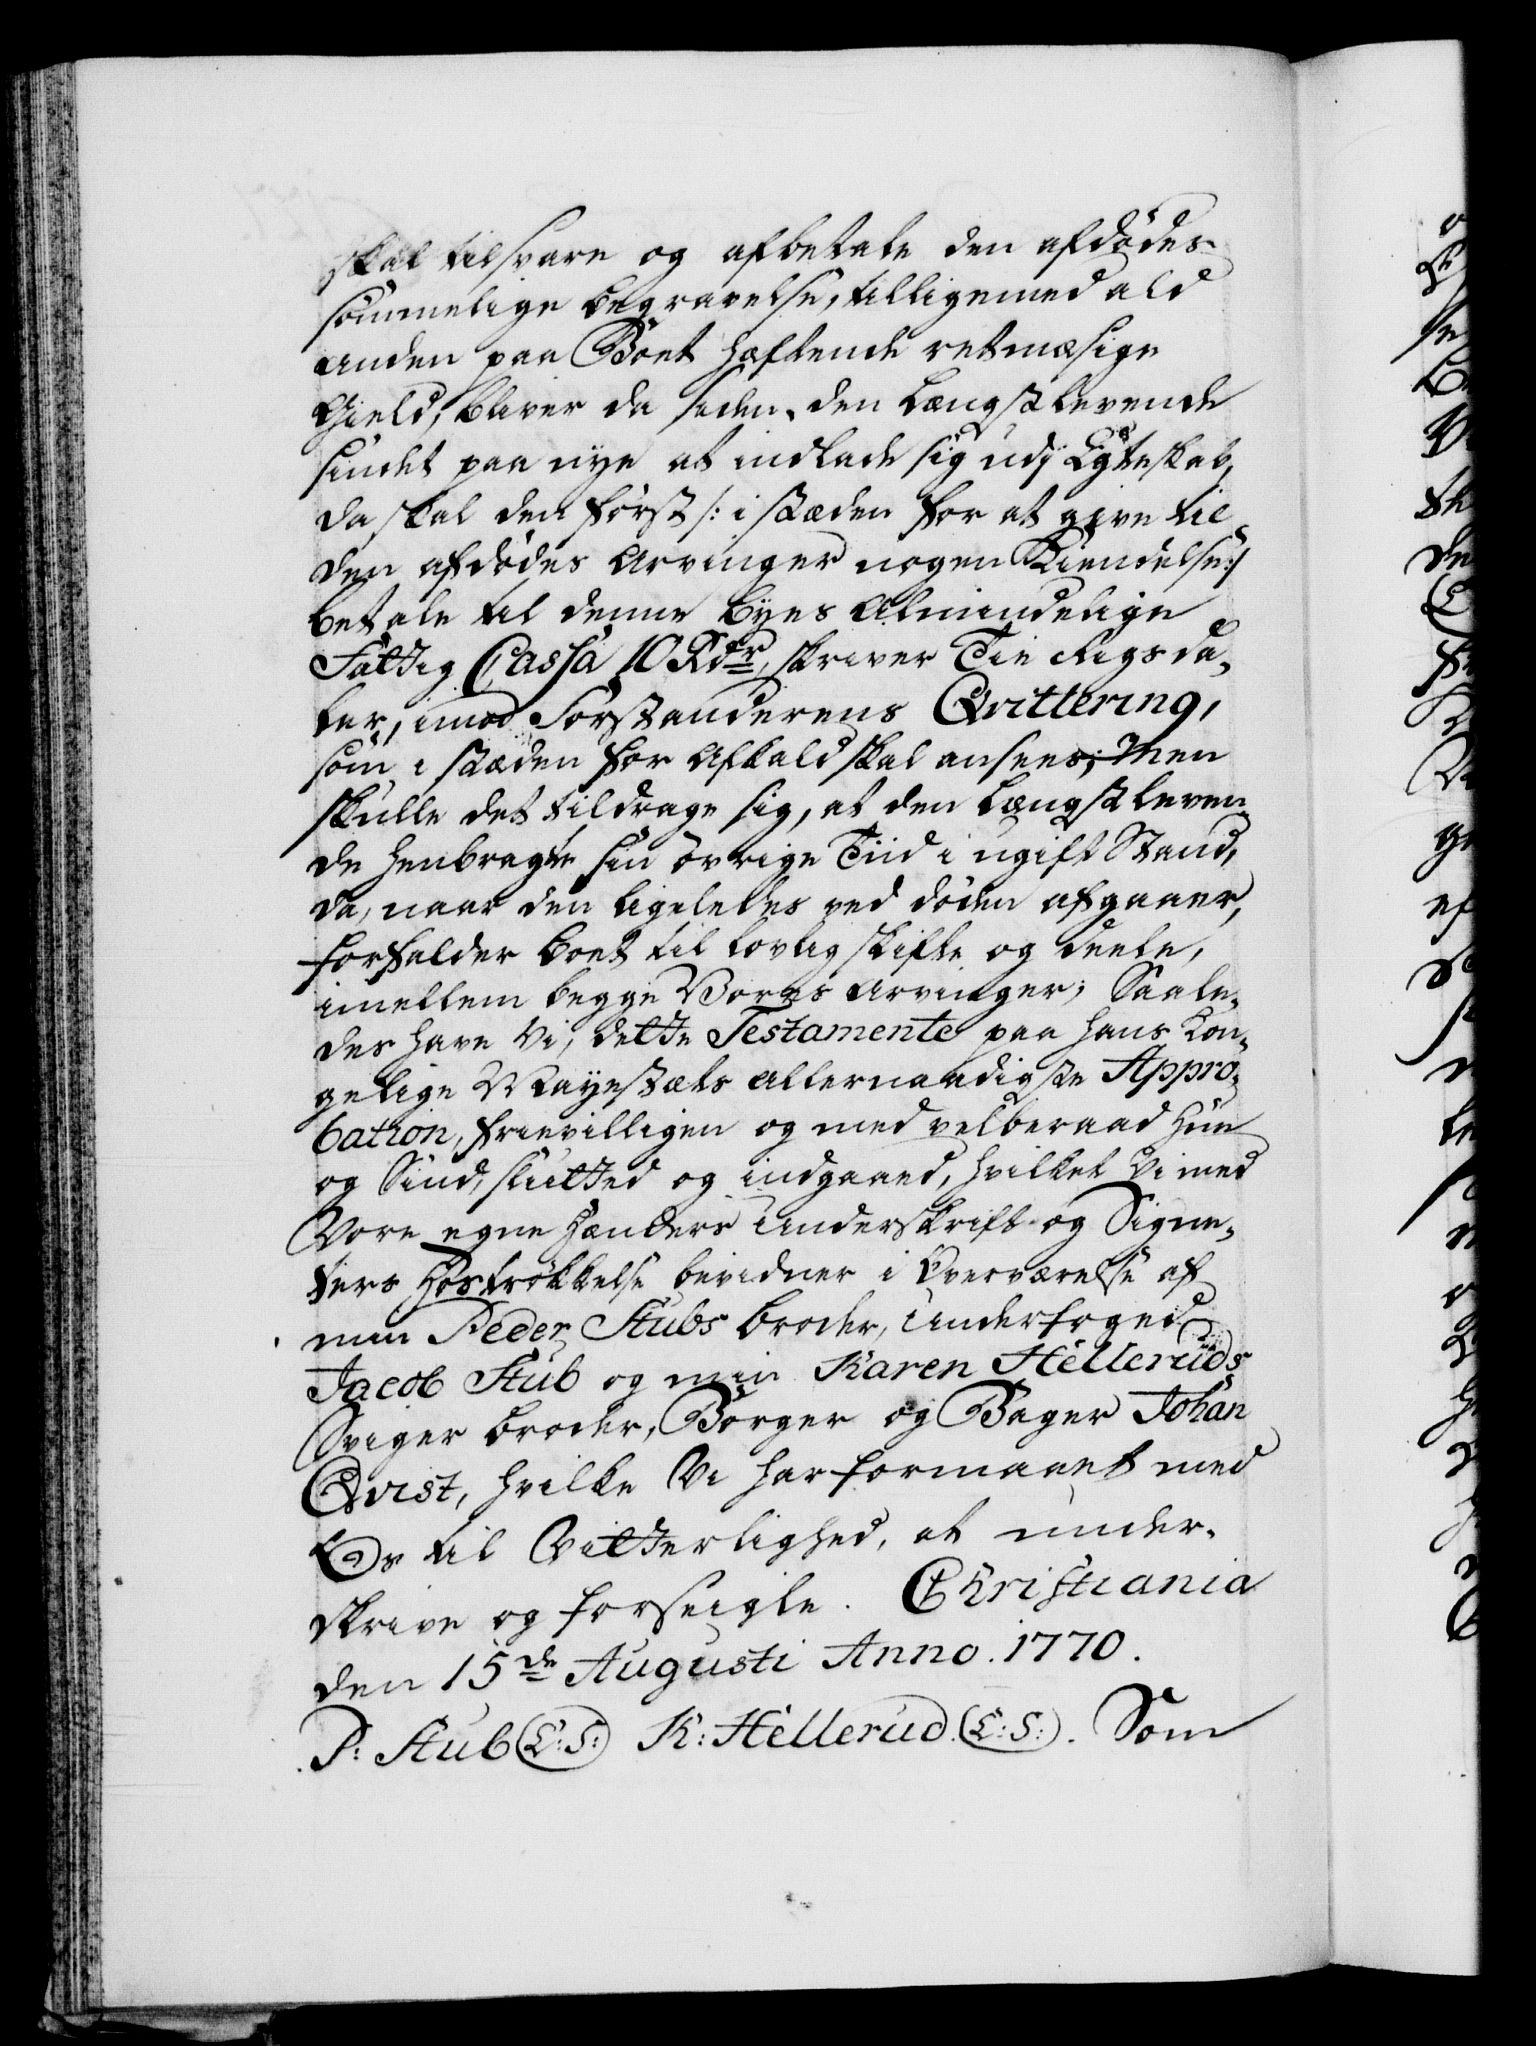 skal tilsvare og afbetale den afdødes
sømmelige begravelse, tilligemed ald
anden paa Boet hæftende retmæsige
Gield, bliver da siden den Længstlevende
sindet paa nye at indlade sig udj Egteskab,
da skal den først /: i stæden for at give til
den afdødes Arvinger nogen Kiendelse :/
betale til denne Byes Almindelige
Fattig Cassa 10 Rdr, skriver Tie Rigsda-
ler, imod Forstanderens Qvittering,
som i stæden for Afkald skal ansees; Men
skulle det tildrage sig, at den Længstleven-
de henbragte sin øvrige Tiid i ugift Stand,
da, naar den ligeledes ved døden afgaaer,
forfalder Boet til lovlig skifte og deele,
imellem begge Vores Arvinger; Saale-
des have Vi, dette Testamente paa Hans Kon-
gelige Mayestæts allernaadigste Appro-
bation, frievilligen og med velberaad Hue
og Sind, slutted og indgaaed, hvilket Vi med
Vore egne Hænders Underskrift og Signe-
ters Hostrøkkelse bevidner i Overværelse af
min Peder Stubs Broder, Underfoged
Jacob Stub og min Karen Helleruds
Sviger Broder, Borger og Bager Johan
Qvist, hvilke Vi har formaaet med
Os til Vitterlighed, at under-
skrive og forseigle. Christiania
den 15de Augusti Anno. 1770.
P: Stub (L:S:) K: Hellerud. (L:S:). Som